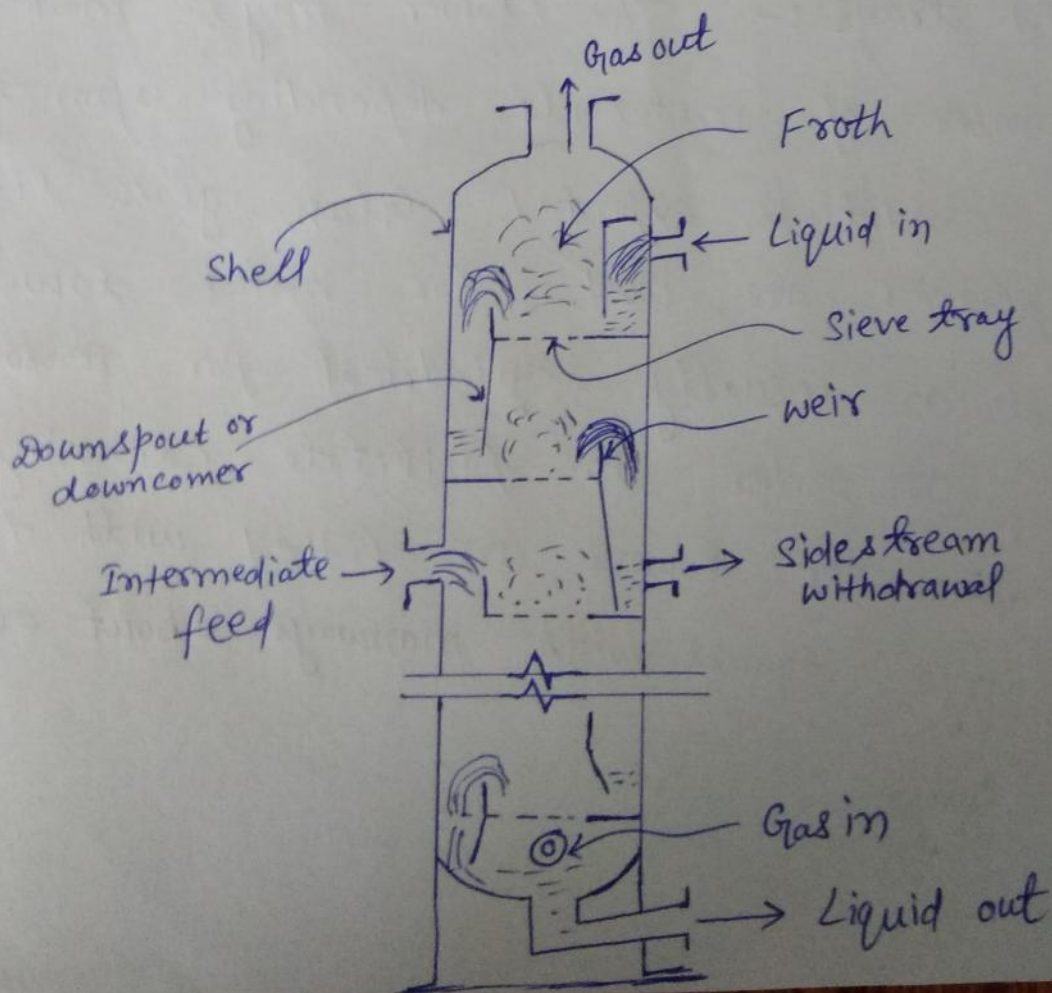 Gas out
Froth
Liquid in
Shell
Sieve tray
weir
Downspout or
downcomer
Intermediate
feed
Side stream
withdrawal
Gas in
Liquid out